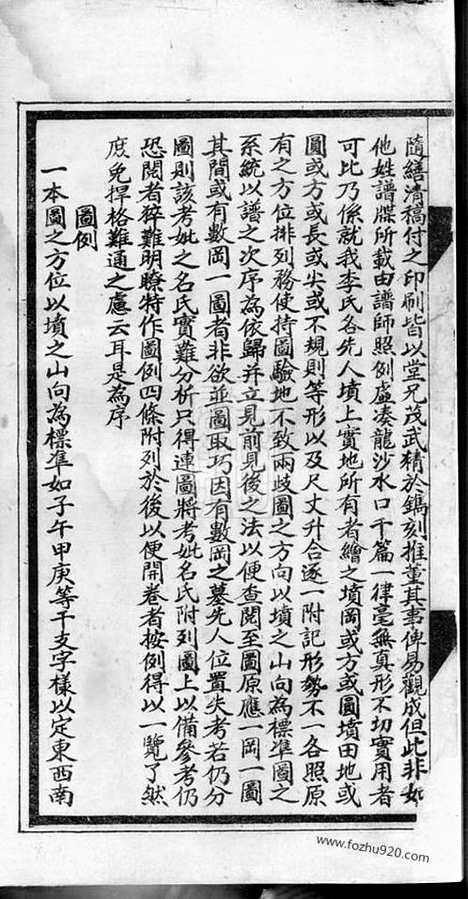 隨繕清稿付之印刷皆以堂兄茂武精於鐫刻推董其事俾易觀成但此非如
他姓譜牒所載由譜師照例虛湊龍沙水口千篇一律毫無真形不切實用者
可比乃係就我李氏各先人墳上實地所有者繪之墳岡或方或圓墳田地或
圓或方或長或尖或不規則等形以及尺丈升合逐一附記形勢不一各照原
有之方位排列務使持圖驗地不致兩歧圖之方向以墳之山向為標準圖之
系統以譜之次序為依歸并立見前見後之法以便查閱至圖原應一岡一圖
其間或有數岡一圖者非欲並圖取巧因有數岡之墓先人位置失考若仍分
圖則該考妣之名氏實難分析只得連圖將考妣名氏附列圖上以備參考仍
恐閱者猝難明瞭特作圖例四條附列於後以便開卷者按例得以一覽了然
庶免捍格難通之慮云耳是為序
圖例
一本圖之方位以墳之山向為標準如子午甲庚等干支字樣以定東西南
www.fozhu920.com